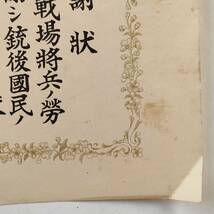 謝狀
戰場將兵ノ勞
シ銃後國民ノ